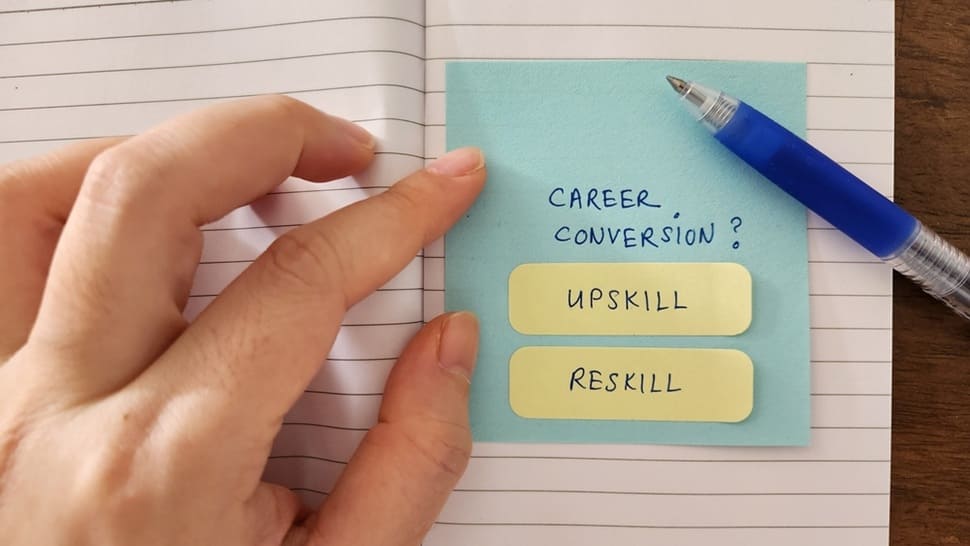 CAREER
CONVERSION?
UPSKILL
RESKILL